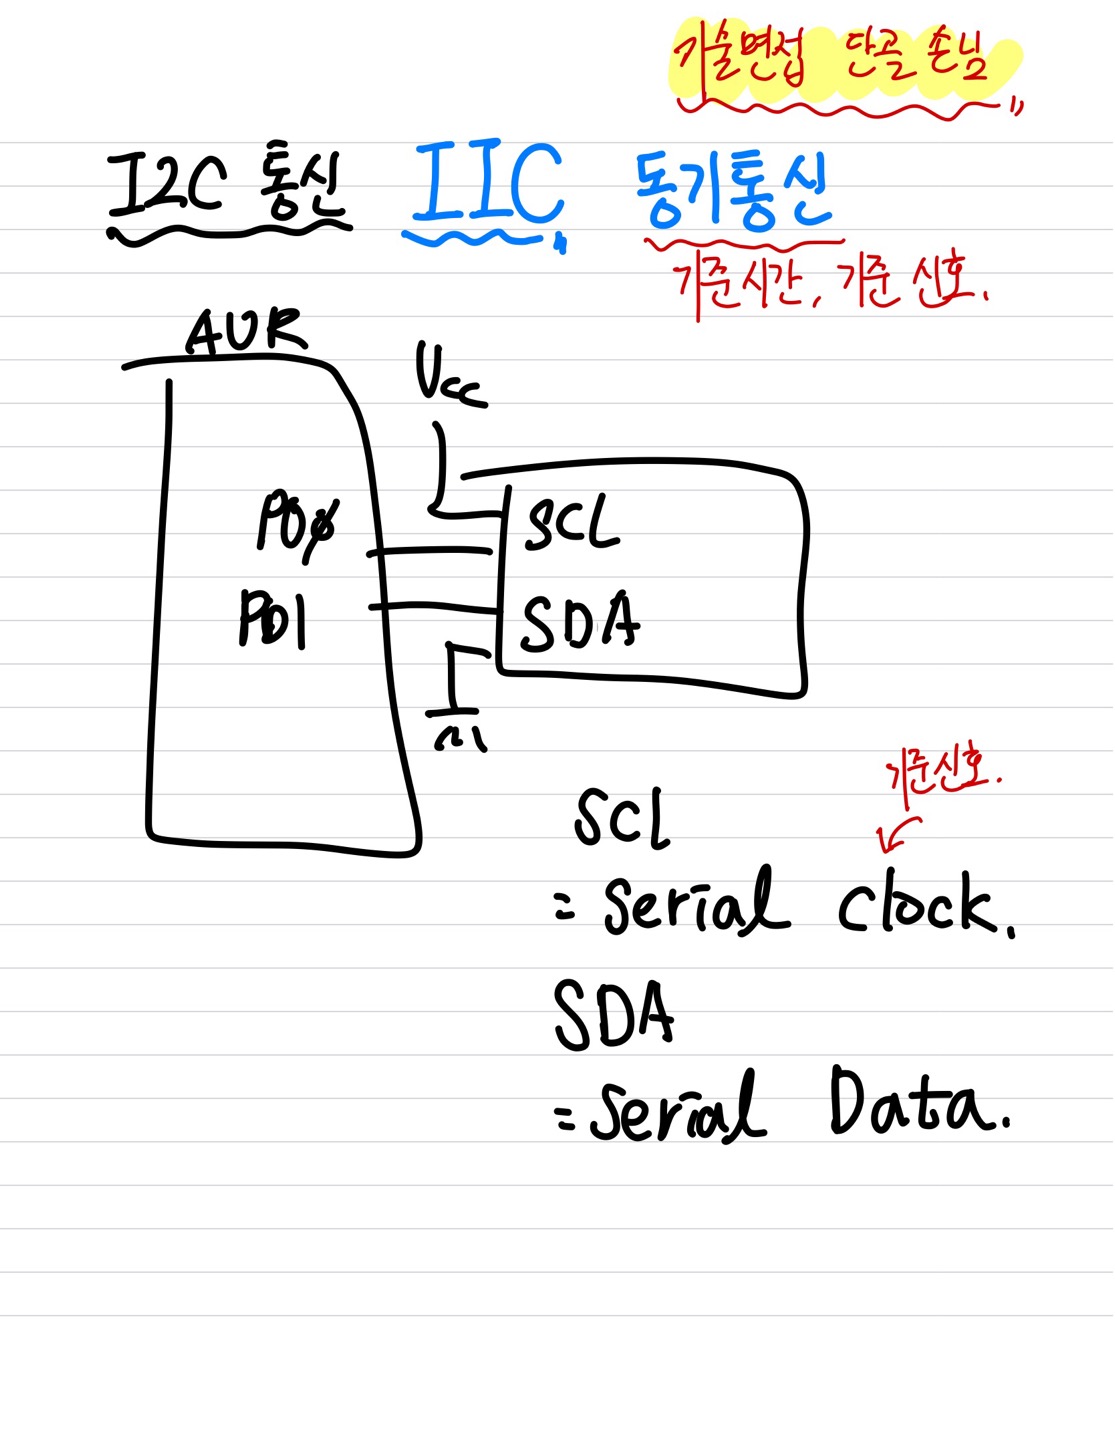 기술면접 단골 손님
I2C 통신 IIC 동기통신
기준시간, 기준 신호.
AVR
Vcc
PD0
SCL
PD1
SDA
기준신호.
SCL
= Serial Clock.
SDA
= Serial Data.